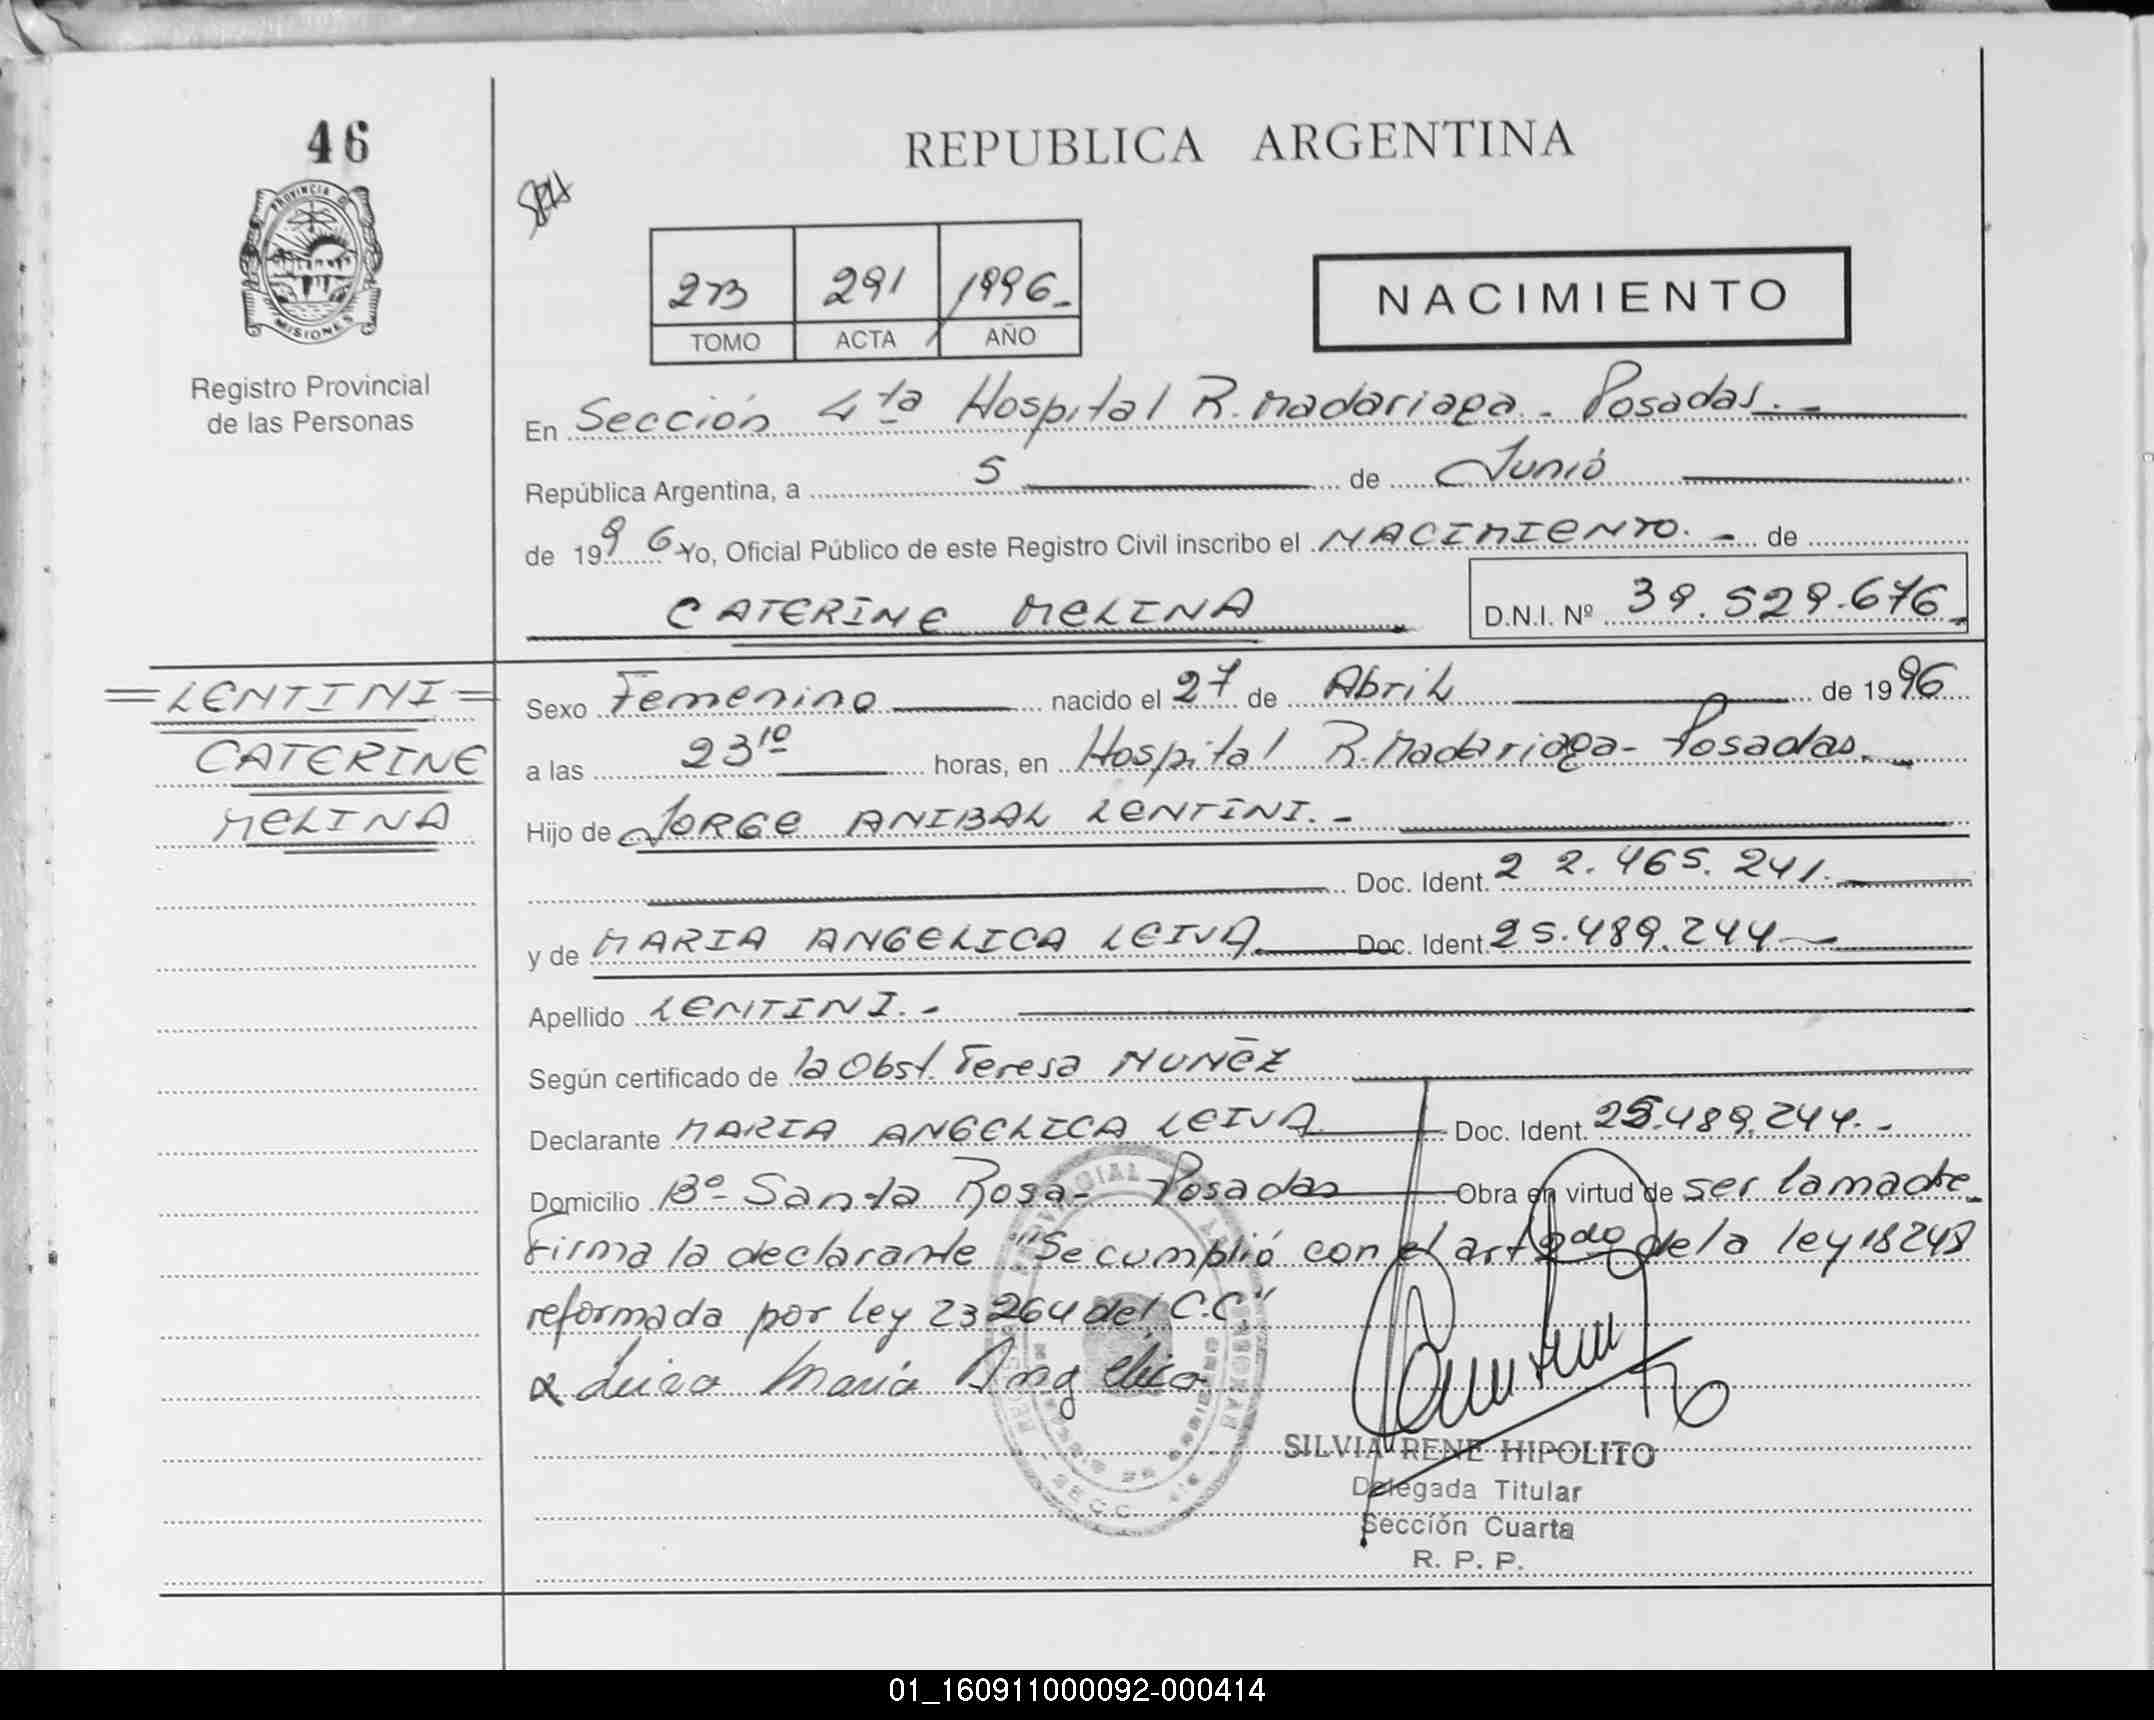 46
REPUBLICA ARGENTINA
PROVINCIA DE
MISIONES
Registro Provincial
de las Personas
273 291 1996-
TOMO ACTA AÑO
NACIMIENTO
En Sección 4ta Hospital R. Madariaga - Posadas.-
República Argentina, a 5 de Junio
de 1996 Yo, Oficial Público de este Registro Civil inscribo el NACIMIENTO.- de
CATERINE MELINA D.N.I. Nº 39.529.676-
=LENTINI=
CATERINE
MELINA
Sexo Femenino nacido el 27 de Abril de 1996
a las 23 10 horas, en Hospital R. Madariaga - Posadas.-
Hijo de JORGE ANIBAL LENTINI.-
Doc. Ident. 22.465.241.
y de MARIA ANGELICA LEIVA Doc. Ident. 25.489.244
Apellido LENTINI.-
Según certificado de la Obst. Teresa NUÑEZ
Declarante MARIA ANGELICA LEIVA Doc. Ident. 25.489.244.-
Domicilio Bº Santa Rosa - Posadas Obra en virtud de ser la madre-
Firma la declarante "Se cumplió con el art 2do de la ley 18248
reformada por ley 23264 del C.C"
Leiva María Angelica
SILVIA RENE HIPOLITO
Delegada Titular
Sección Cuarta
R. P. P.
01_160911000092-000414